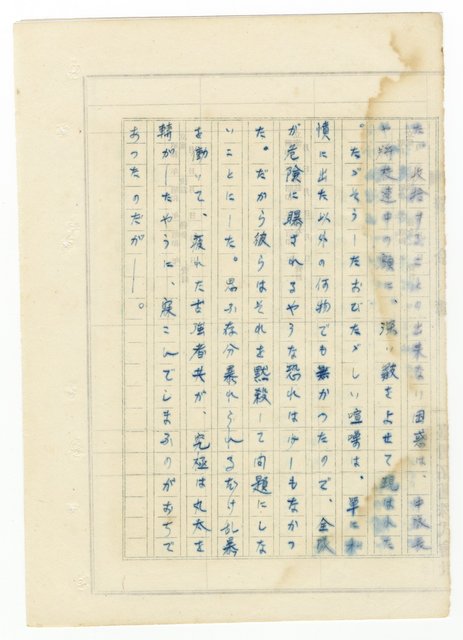 た。収拾することの出来ない困惑は、中隊長
や幹部達中の額に、深い皺をよせて現はれた
。たゞそうしたおびたゞしい喧噪は、單に私
憤に出た以外の何物でも無かつたので、全隊
が危險に曝されるやうな恐れは少しもなかつ
た。だから彼らはそれを黙殺して問題にしな
いことにした。思ふ存分暴れられるだけ乱暴
を働いて、疲れた古強者共が、究極は丸太を
轉がしたやうに、寐こんでしまふのがおちで
あつたのだが―。